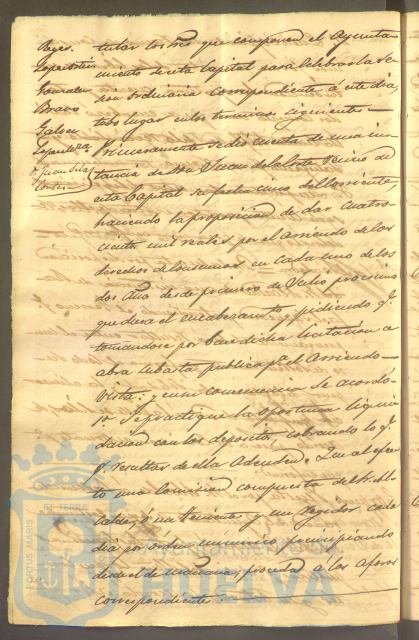 Reyes
Lopez
Gonzalez
Bravo
Galvez
Lepanteza
Juan de la
Cortes
tular los Sres que componen el Ayunta-
miento de esta Capital para celebrar la se-
sion ordinaria correspondiente á este dia,
tubo lugar en los terminos siguientes—
Primeramente se dió cuenta de una ins-
tancia de Don Juan de la Corte Vecino de
esta Capital su fecha cinco del corriente,
haciendo la proposicion de dar cuatro-
cientos mil reales por el Arriendo de los
derechos de Consumos en cada uno de los
dos Años desde primero de Julio procsimo
que dura el encabezamto y pidiendo qe
tomandose por base dicha licitacion se
abra subasta publica pa el Arriendo—
Vista: y en su consecuencia se acordó:
1º Se practique la oportuna liqui
dacion con los depositos, cobrando lo qe
pr resultas de ella Adeuden. Que al efec-
to una Comision compuesta del Sr. Al-
calde, ó un Teniente y un Regidor cada
dia por orden numerico principiando
desde el de mañana, proceda a los aforos
correspondientes.
PORTUS MARIS
ET TERRÆ
Ayuntamiento de
HUELVA